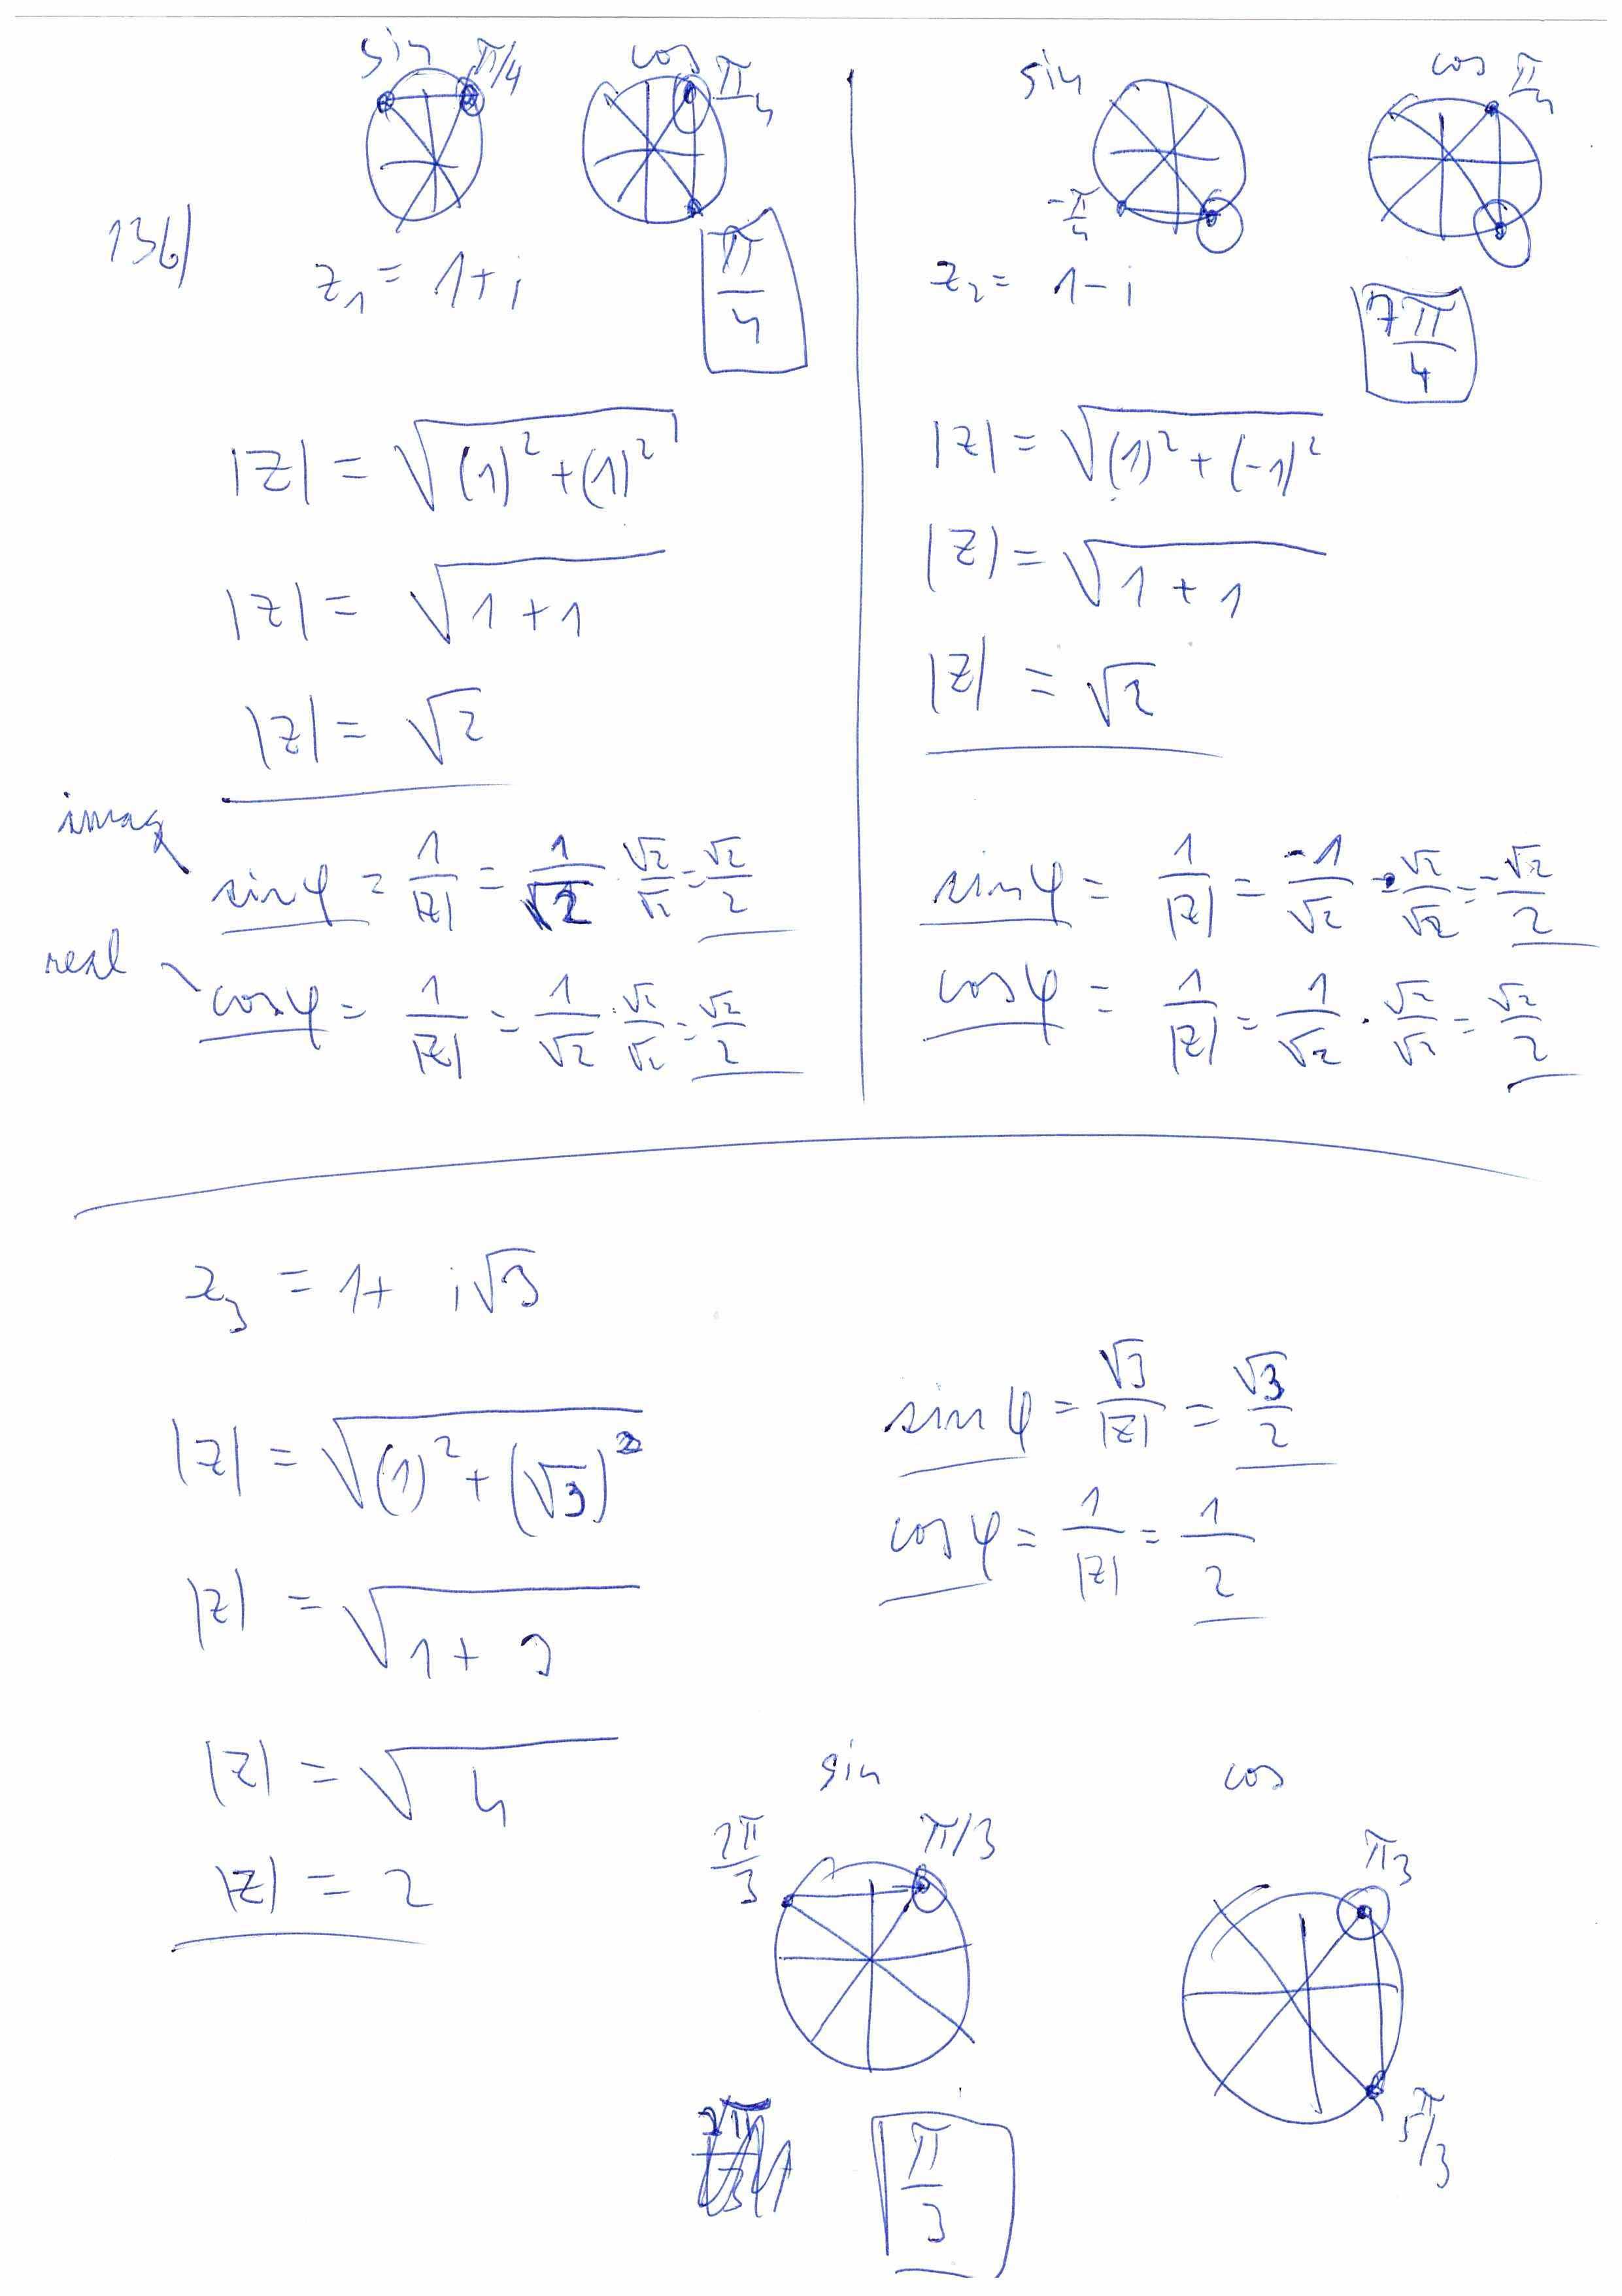 sin π/4 cos π/4
136)
z₁ = 1+i
π/4
|z| = √((1)² + (1)²)
|z| = √(1+1)
|z| = √2
imag
sin φ = 1/|z| = 1/√2 · √2/√2 = √2/2
real
cos φ = 1/|z| = 1/√2 · √2/√2 = √2/2
sin cos π/4
-π/4
z₂ = 1-i
7π/4
|z| = √((1)² + (-1)²)
|z| = √(1+1)
|z| = √2
sin φ = 1/|z| = -1/√2 · √2/√2 = -√2/2
cos φ = 1/|z| = 1/√2 · √2/√2 = √2/2
z₃ = 1+ i√3
|z| = √((1)² + (√3)²)
|z| = √(1+3)
|z| = √4
|z| = 2
sin φ = √3/|z| = √3/2
cos φ = 1/|z| = 1/2
sin cos
2π/3 π/3 π/3
5π/3
π/3